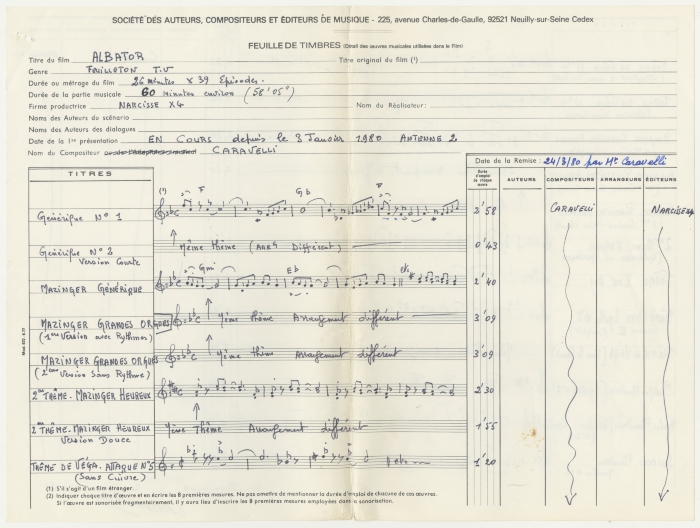 SOCIÉTÉ DES AUTEURS, COMPOSITEURS ET ÉDITEURS DE MUSIQUE - 225, avenue Charles-de-Gaulle, 92521 Neuilly-sur-Seine Cedex
FEUILLE DE TIMBRES (Détail des œuvres musicales utilisées dans le film)
Titre du film ALBATOR Titre original du film (¹)
Genre FEUILLETON T.V
Durée ou métrage du film 26 minutes x 39 Episodes.
Durée de la partie musicale 60 minutes environ (58'05")
Firme productrice NARCISSE X4 Nom du Réalisateur:
Noms des Auteurs du scénario
Noms des Auteurs des dialogues
Date de la 1re présentation EN COURS depuis le 3 Janvier 1980 ANTENNE 2
Nom du Compositeur CARAVELLI
Date de la Remise : 24/3/80 par Mr Caravelli
TITRES
Durée d'emploi de chaque œuvre AUTEURS COMPOSITEURS ARRANGEURS ÉDITEURS
(¹) F Gb F
Générique N° 1 2'58 CARAVELLI NARCISSE X4
Générique N° 2 Même thème (ARRG Différent) 0'43
Version Courte
Gmi Eb etc
MAZINGER Générique 2'40
MAZINGER GRANDES ORGUES Même thème Arrangement différent 3'09
(1ère Version avec Rythmes)
MAZINGER GRANDES ORGUES Même thème Arrangement différent 3'09
(2ème Version Sans Rythme)
2ème THÈME. MAZINGER HEUREUX 2'30
2ème THÈME. MAZINGER HEUREUX Même Thème Arrangement différent 1'55
Version Douce
THÈME DE VÉGA. ATTAQUE N°5 1'20
(Sans Cuivre)
(1) S'il s'agit d'un film étranger.
(2) Indiquer chaque titre d'œuvre et en écrire les 8 premières mesures. Ne pas omettre de mentionner la durée d'emploi de chacune de ces œuvres.
Si l'œuvre est sonorisée fragmentairement, il y aura lieu d'inscrire les 8 premières mesures employées dans la sonorisation.